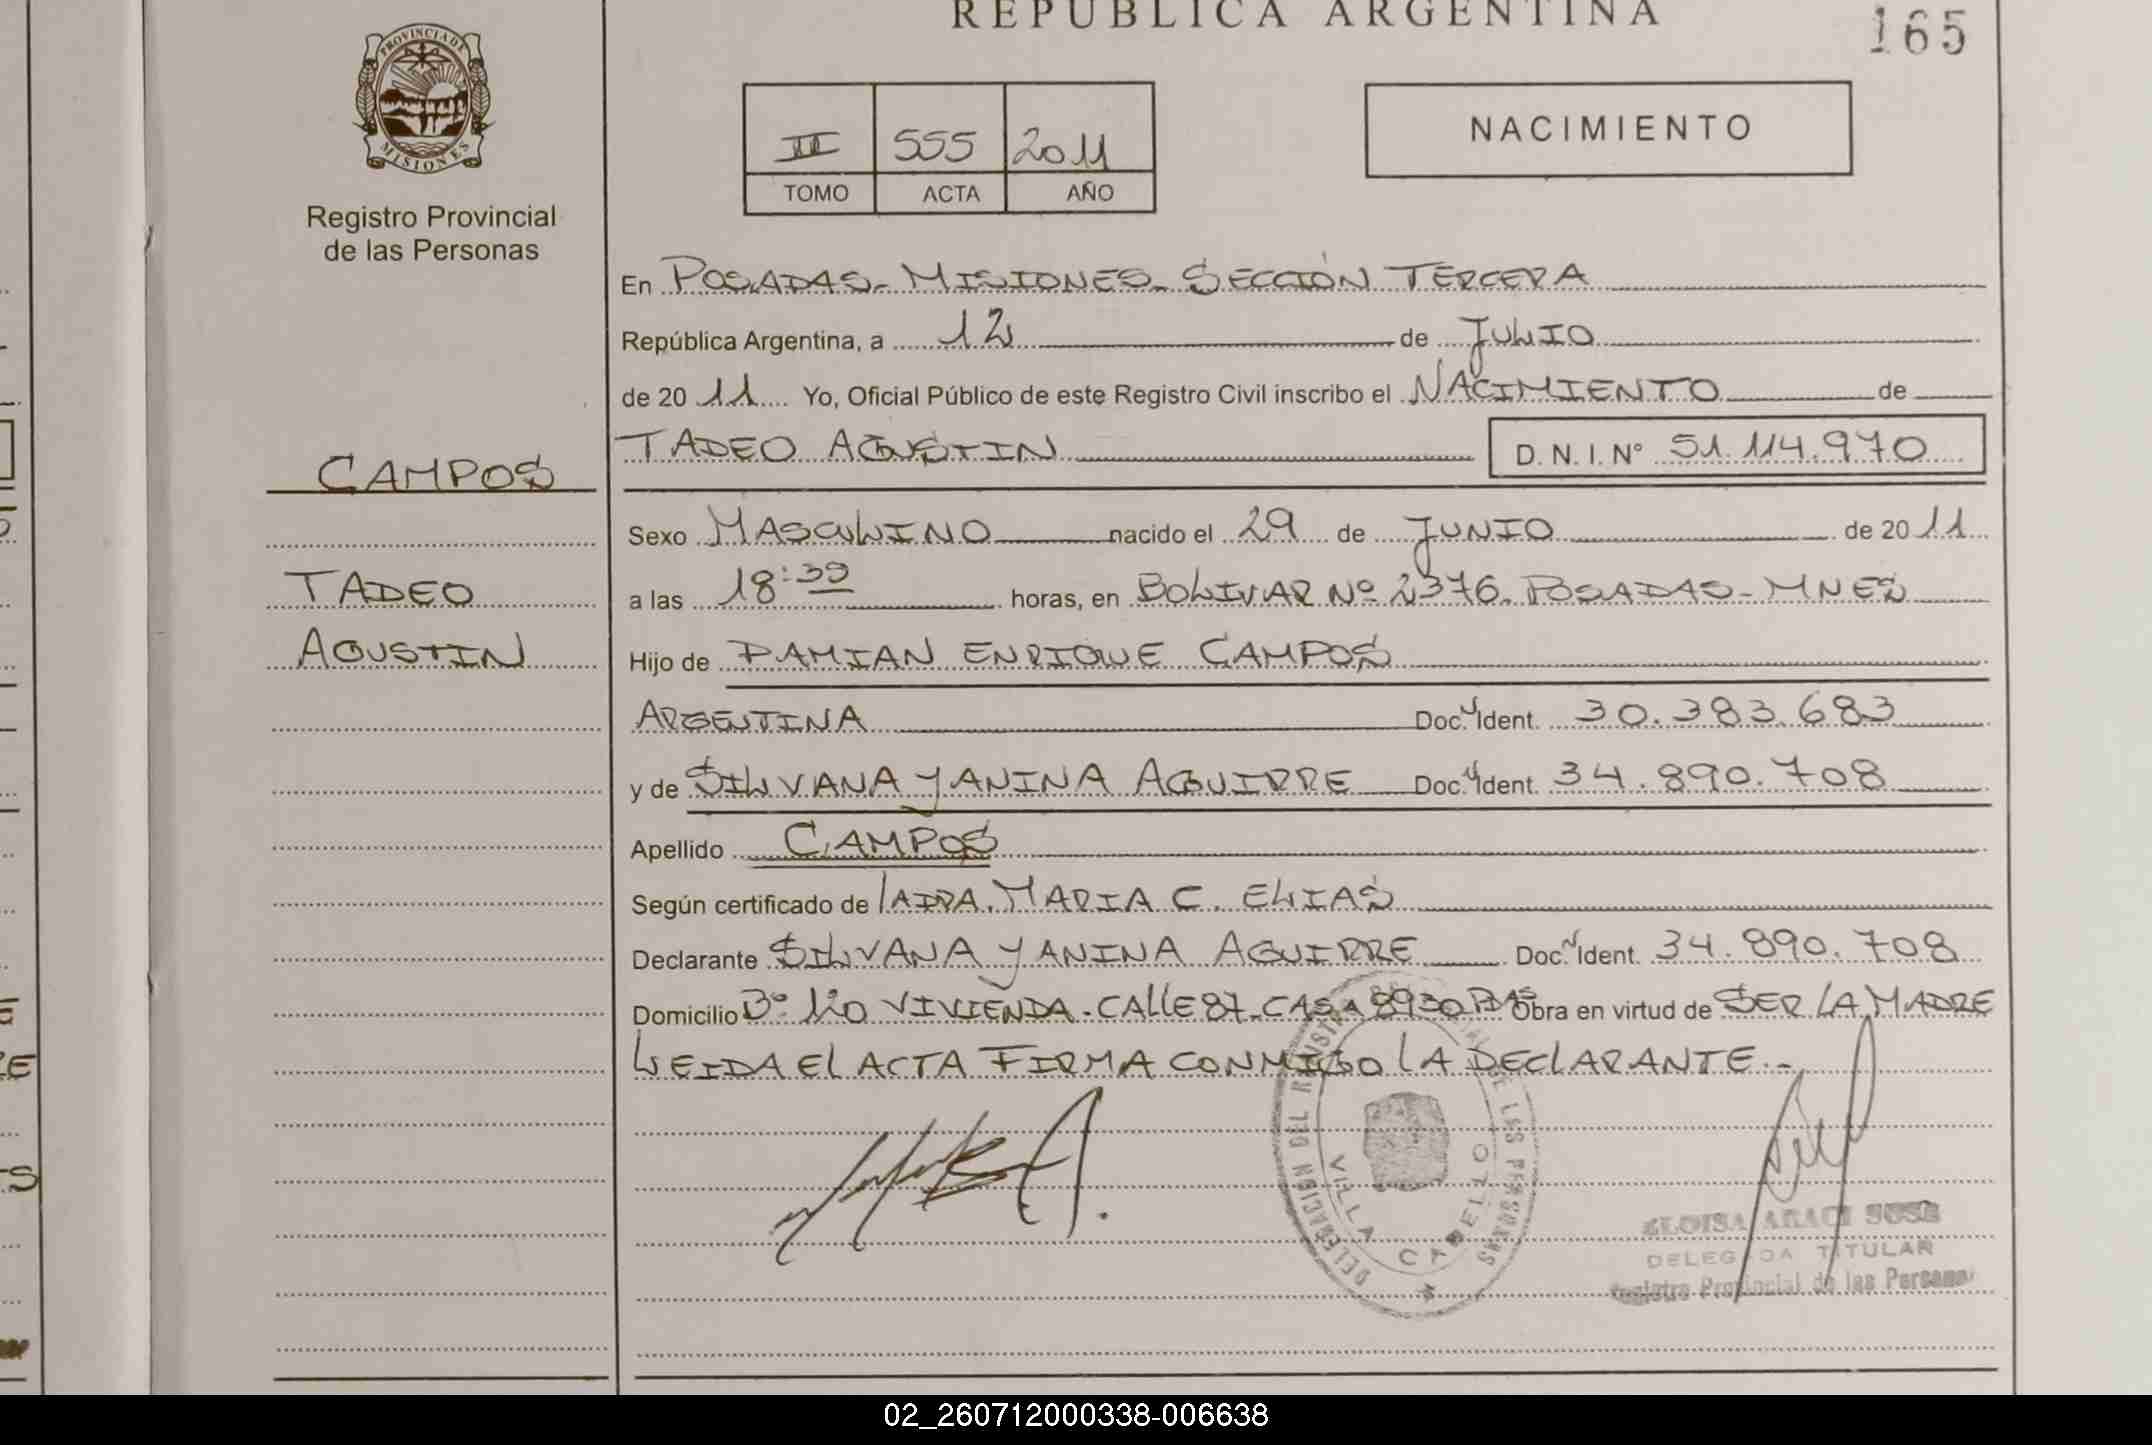 REPUBLICA ARGENTINA
165
PROVINCIA DE MISIONES
Registro Provincial
de las Personas
II 555 2011
TOMO ACTA AÑO
NACIMIENTO
En POSADAS - MISIONES - SECCIÓN TERCERA
República Argentina, a 12 de JULIO
de 20 11 Yo, Oficial Público de este Registro Civil inscribo el NACIMIENTO de
TADEO AGUSTIN D.N.I. N° 51.114.970
CAMPOS
TADEO
AGUSTIN
Sexo MASCULINO nacido el 29 de JUNIO de 20 11
a las 18:39 horas, en BOLIVAR Nº 2376. POSADAS - MNES
Hijo de DAMIAN ENRIQUE CAMPOS
ARGENTINA Doc. Ident. 30.383.683
y de SILVANA YANINA AGUIRRE Doc. Ident. 34.890.708
Apellido CAMPOS
Según certificado de LA DRA. MARIA C. ELIAS
Declarante SILVANA YANINA AGUIRRE Doc. Ident. 34.890.708
Domicilio Bº 120 VIVIENDA - CALLE 87 - CASA 8930 PDAS Obra en virtud de SER LA MADRE
LEIDA EL ACTA FIRMA CONMIGO LA DECLARANTE.-
DELEGACION DEL REGISTRO PROVINCIAL DE LAS PERSONAS
VILLA CABELLO
ELOISA ARACI
DELEGADA TITULAR
Registro Provincial de las Personas
02_260712000338-006638